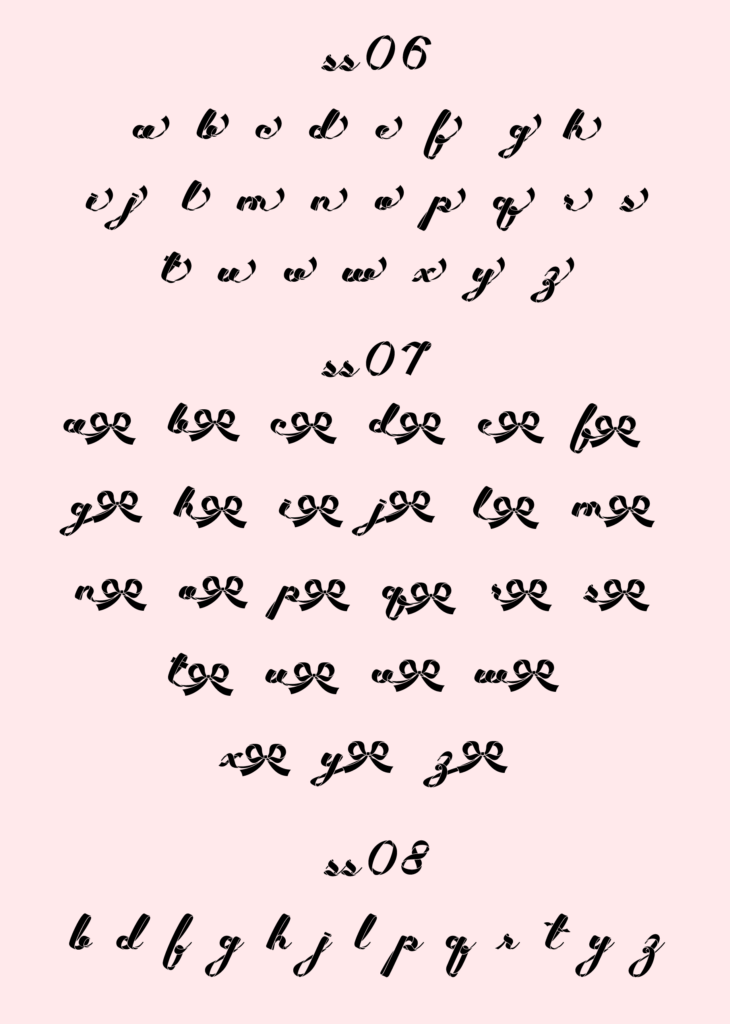 ss06
a b c d e f g h
i j l m n o p q r s
t u v w x y z
ss07
a b c d e f
g h i j l m
n o p q r s
t u v w
x y z
ss08
b d f g h j l p q r t y z